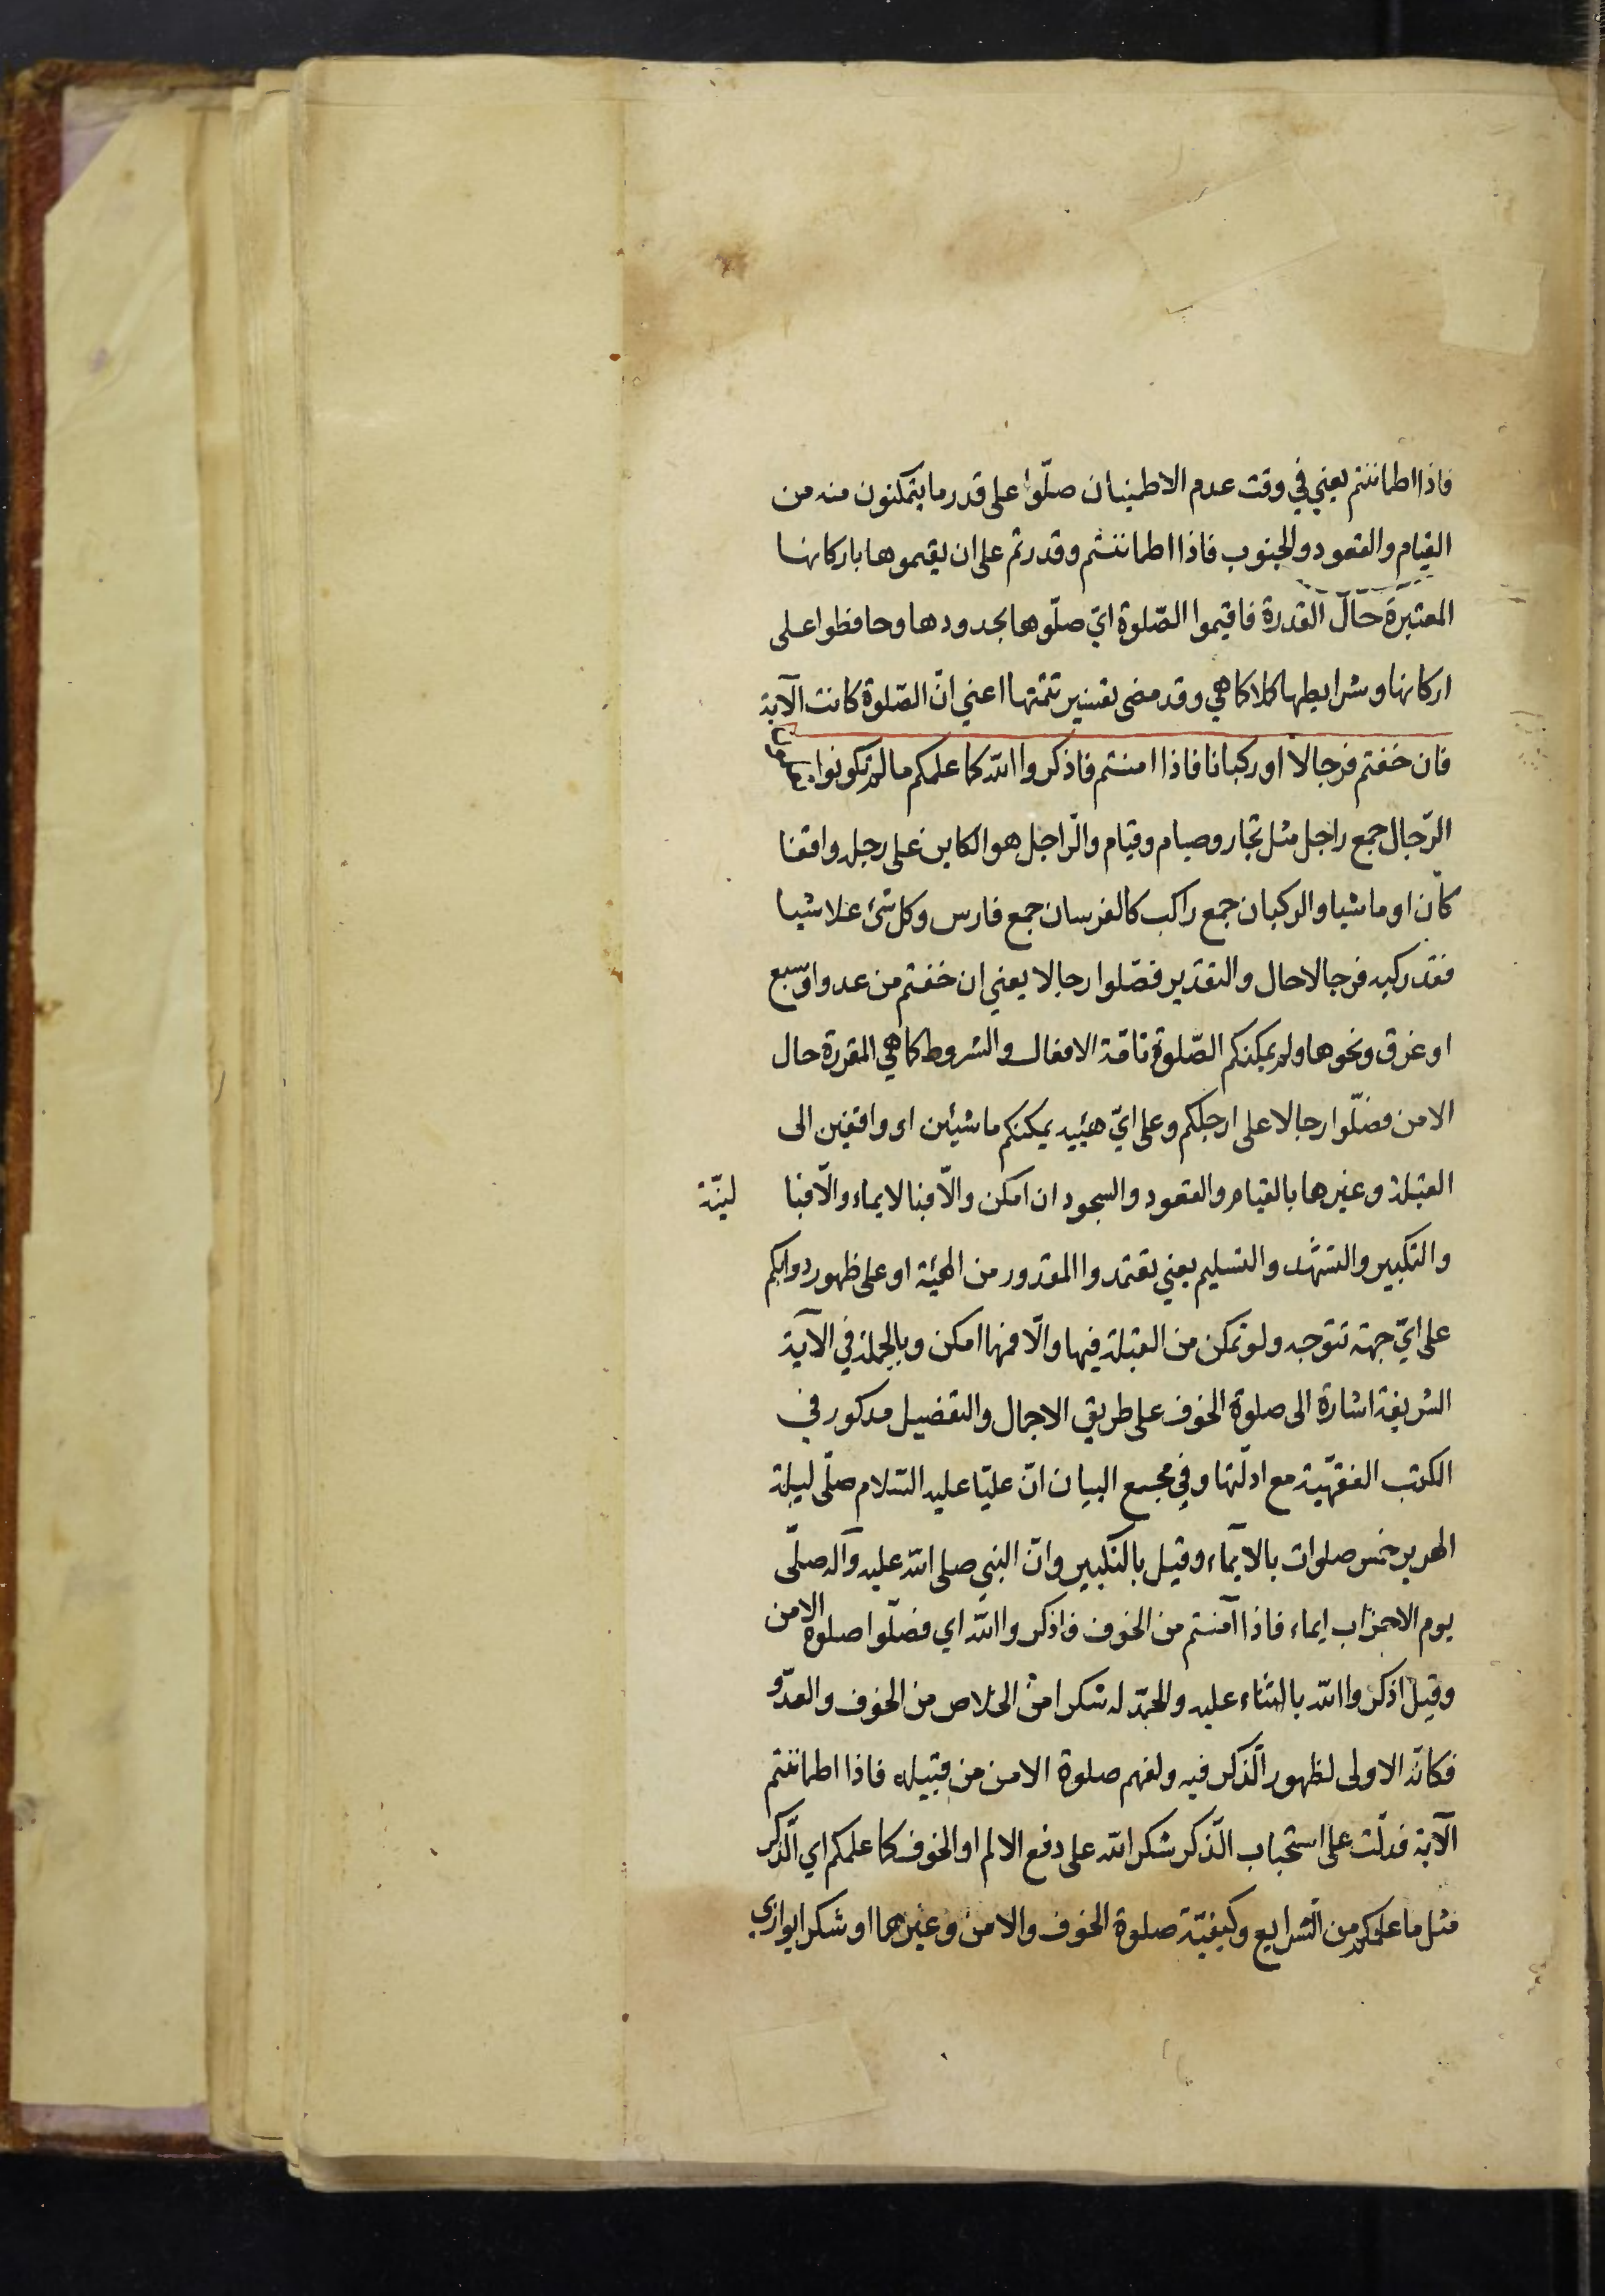 فاذا اطماننتم يعني في وقت عدم الاطمينان صلّوا على قدر ما يتمكنون منه من
القيام والقعود والجنوب فاذا اطماننتم وقدرتم على ان يقيموها باركانها
المعتبرة حال القدرة فاقيموا الصّلوة ايّ صلّوها بحدودها وحافظوا على
اركانها وشرايطها كلا كما هي وقد مضى تفسير تتمّتها اعني انّ الصّلوة كانت الآية
فان خفتم فرجالا او ركبانا فاذا امنتم فاذكروا الله كما علمكم ما لم تكونوا
الرّجال جمع راجل مثل تجار وصيام وقيام والرّاجل هو الكاين على رجله واقفا
كان او ماشيا والركبان جمع راكب كالفرسان جمع فارس وكل شئ علا شيا
فقد ركبه فرجالا حال والتقدير فصّلوا رجالا يعني ان خفتم من عدو او سبع
او غرق ونحوها ولم يمكنكم الصّلوة تامّة الافعال والشروط كما هي المقررة حال
الامن فصّلوا رجالا على ارجلكم وعلى ايّ هيئيه يمكنكم ماشيئن او واقفين الى
القبلة وغيرها بالقيام والقعود والسجود ان امكن والّا فبا لايماء والّا فبا لنيّة
والتكبير والتشهّد والتسليم يعني تعتمدوا المقدور من الهيئة او على ظهور دوابكم
على ايّ جهة تتوجه ولو تمكن من القبلة فيها والّا فمها امكن وبالجملة في الآية
الشريفة اشارة الى صلوة الخوف على طريق الاجمال والتفضيل مدكور في
الكتب الفقهّية مع ادلّتها وفي مجمع البيان انّ عليّا عليه السّلام صلّى ليلة
الهرير خمس صلوات بالايمآء وقيل بالتكبير وانّ النبي صلى الله عليه وآله صلّى
يوم الاحزاب ايماء فاذا آمنتم من الخوف فاذكروا الله اي فصلّوا صلوة الامن
وقيل اذكروا الله بالثناء عليه والحمد له شكرا من الخلاص من الخوف والعدّو
فكانّه الاولى لظهور الّذكر فيه ولفهم صلوة الامن من قبيله فاذا اطماننتم
الآية فدلّت على استحباب الّذكر شكر الله على دفع الالم او الخوف كما علمكم اي الّذكر
مثل ما علمكم من الّشرايع وكيفيّة صلوة الخوف والامن وغيرهما او شكرا يوازي